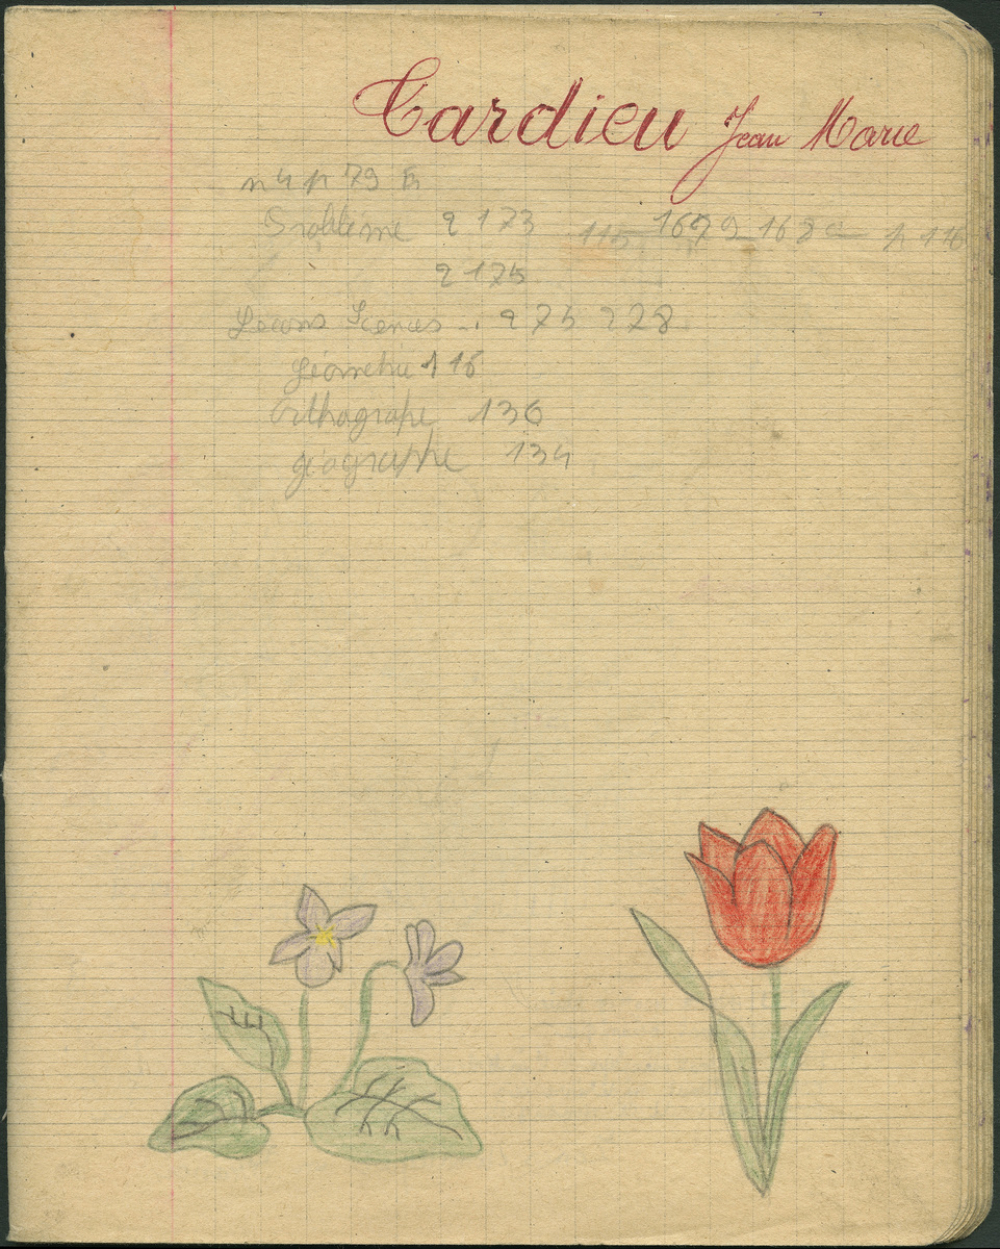 Tardieu Jean Marie
n 4 p 79
Problème 2173 115 1679 168 p 116
2175
Lecons Sciences 275 228
géometrie 116
Orthograpе 136
géographie 134